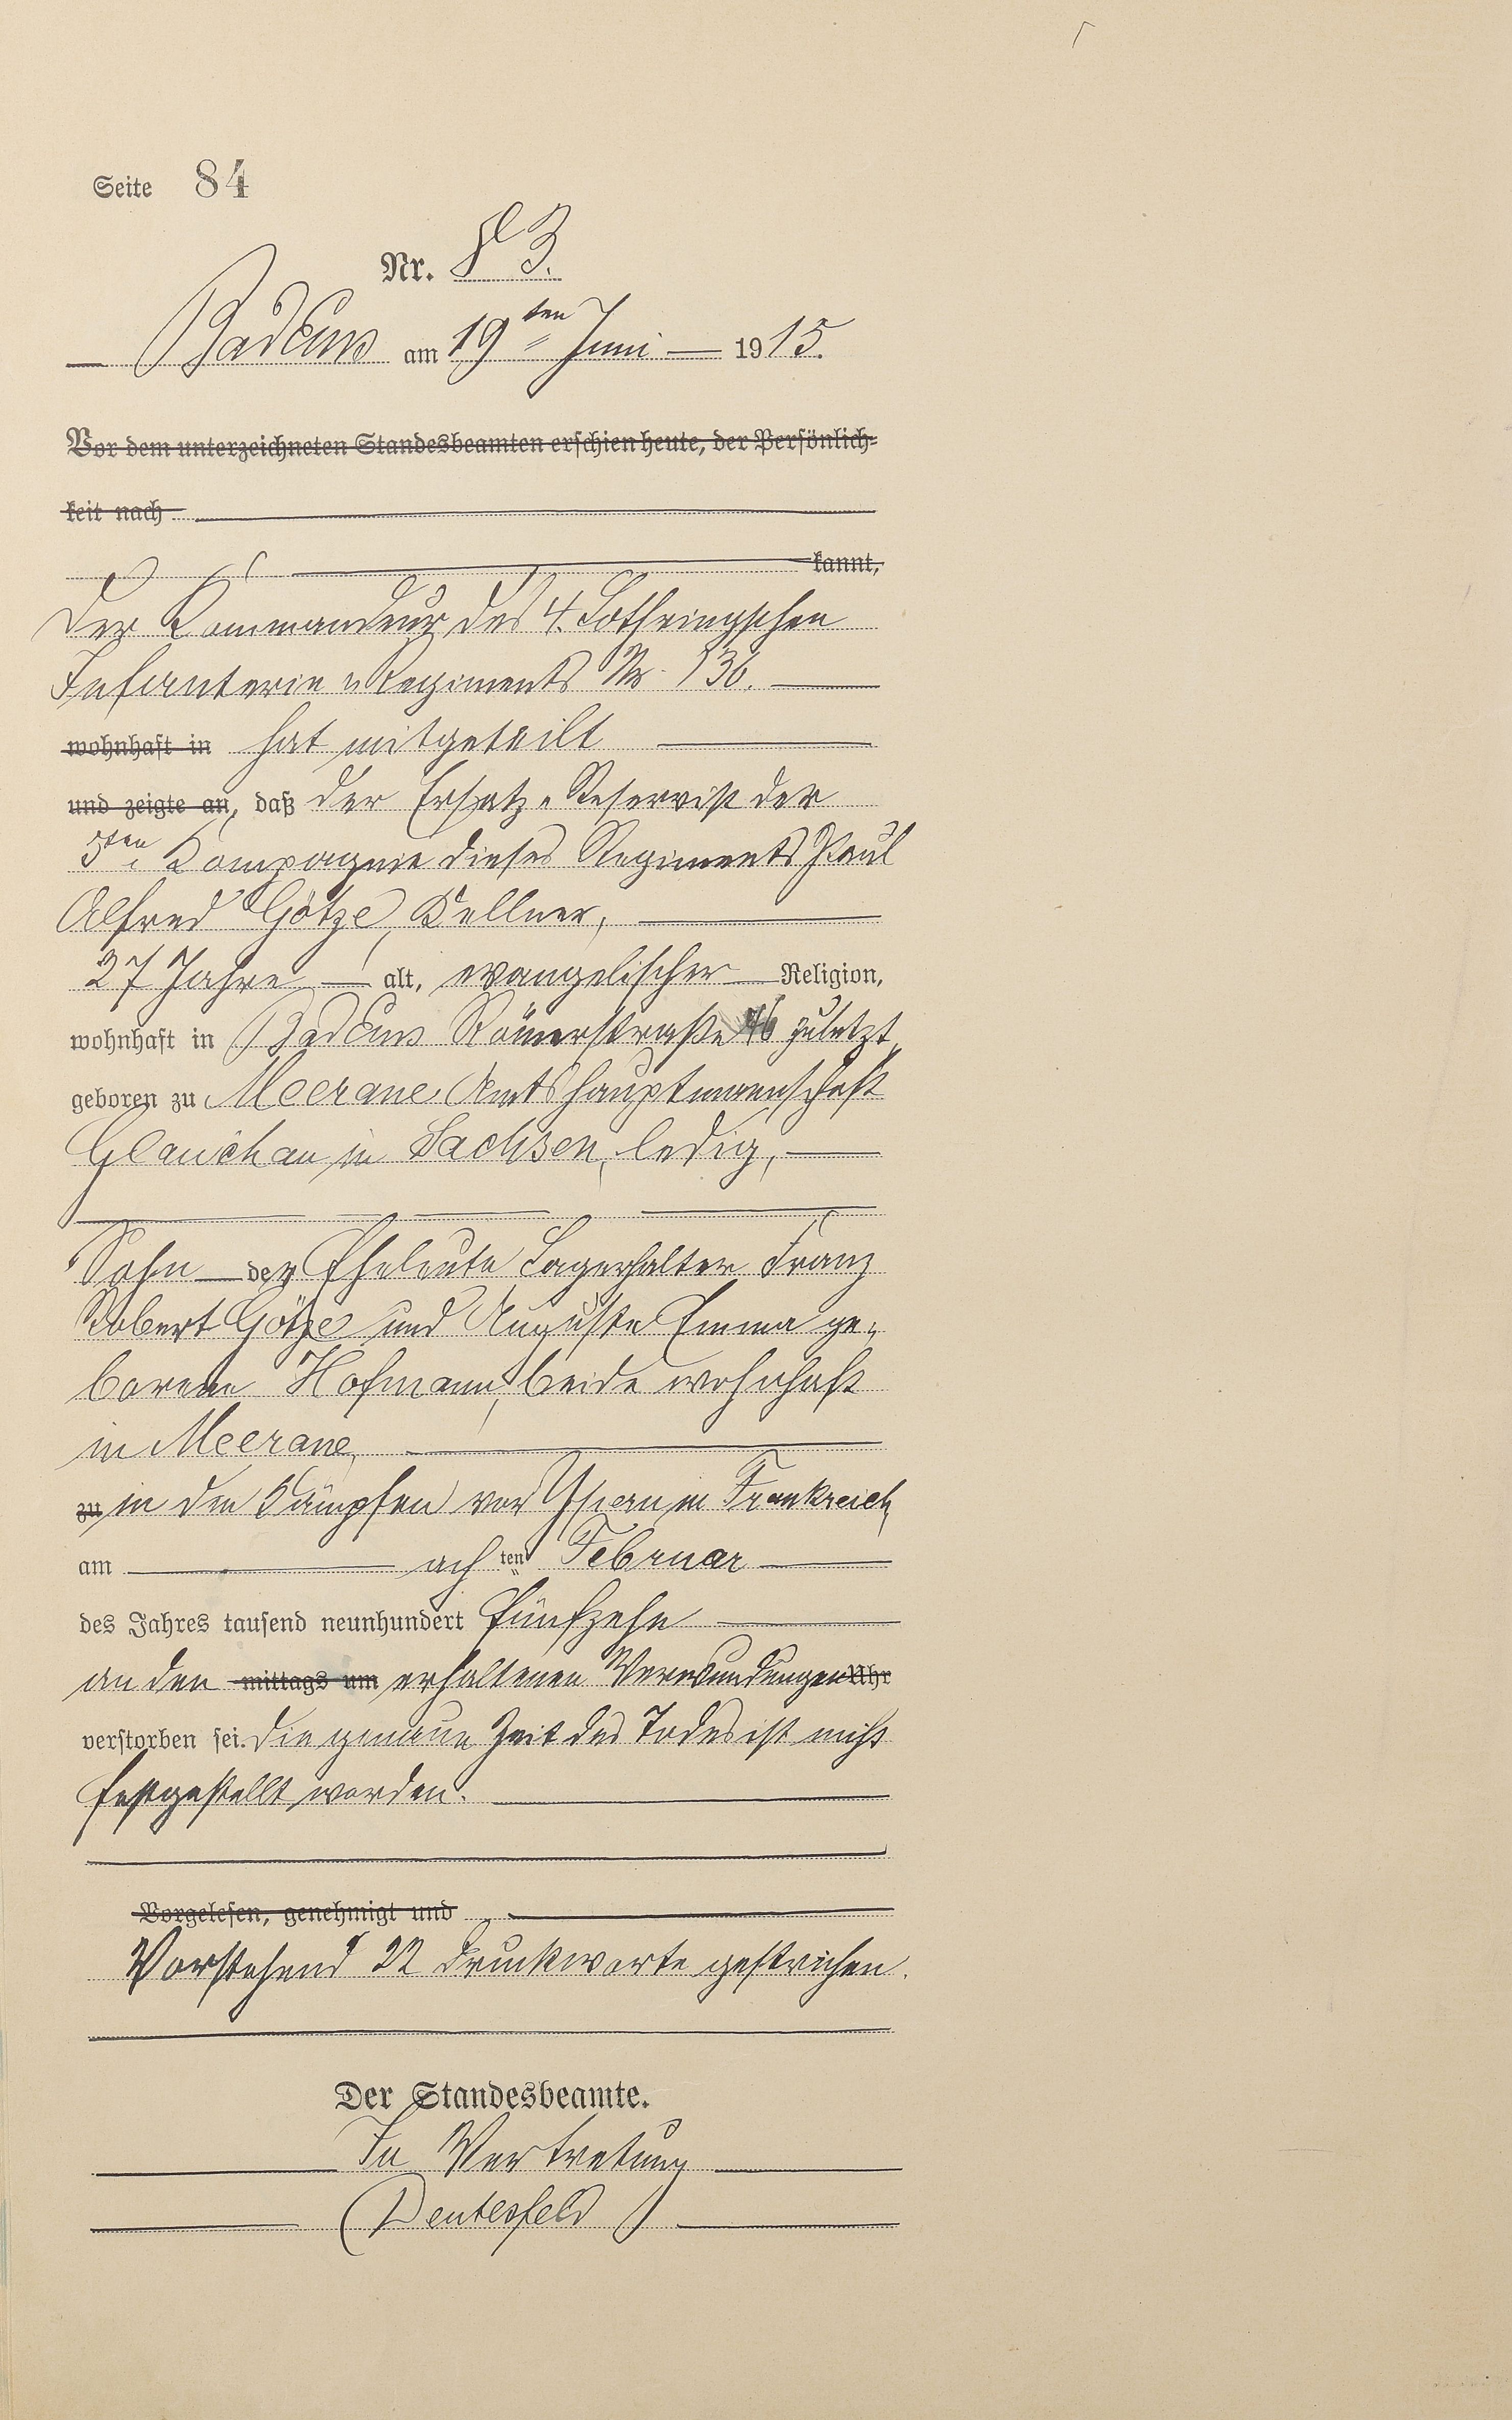 Seite 84
Nr. 83.
Bad Ems am 19ten Juni 1915.
Vor dem unterzeichneten Standesbeamten erschien heute, der Persönlich-
keit nach
kannt,
Der Kommandeur des 4. Lothringschen
Infanterie-Regiments Nr. 136.
wohnhaft in hat mitgeteilt
und zeigte an, daß der Ersatz-Reservist der
5ten Kompagnie dieses Regiments Paul
Alfred Götze, Kellner,
27 Jahre alt, evangelischer Religion,
wohnhaft in Bad Ems Römerstraße zuletzt,
geboren zu Meerane Amtshauptmannschaft
Glauchau in Sachsen, ledig,
Sohn der Eheleute Lagerhalter Franz
Robert Götze und Auguste Emma ge-
borene Hofmann, beide wohnhaft
in Meerane,
zu in den Kämpfen vor in Frankreich,
am achten Februar
des Jahres tausend neunhundert fünfzehn
an den mittags um erhaltenen Verwundungen Uhr
verstorben sei. Die genaue Zeit des Todes ist nicht
festgestellt worden.
Vorgelesen, genehmigt und
Vorstehend 22 Druckworte gestrichen.
Der Standesbeamte.
In Vertretung